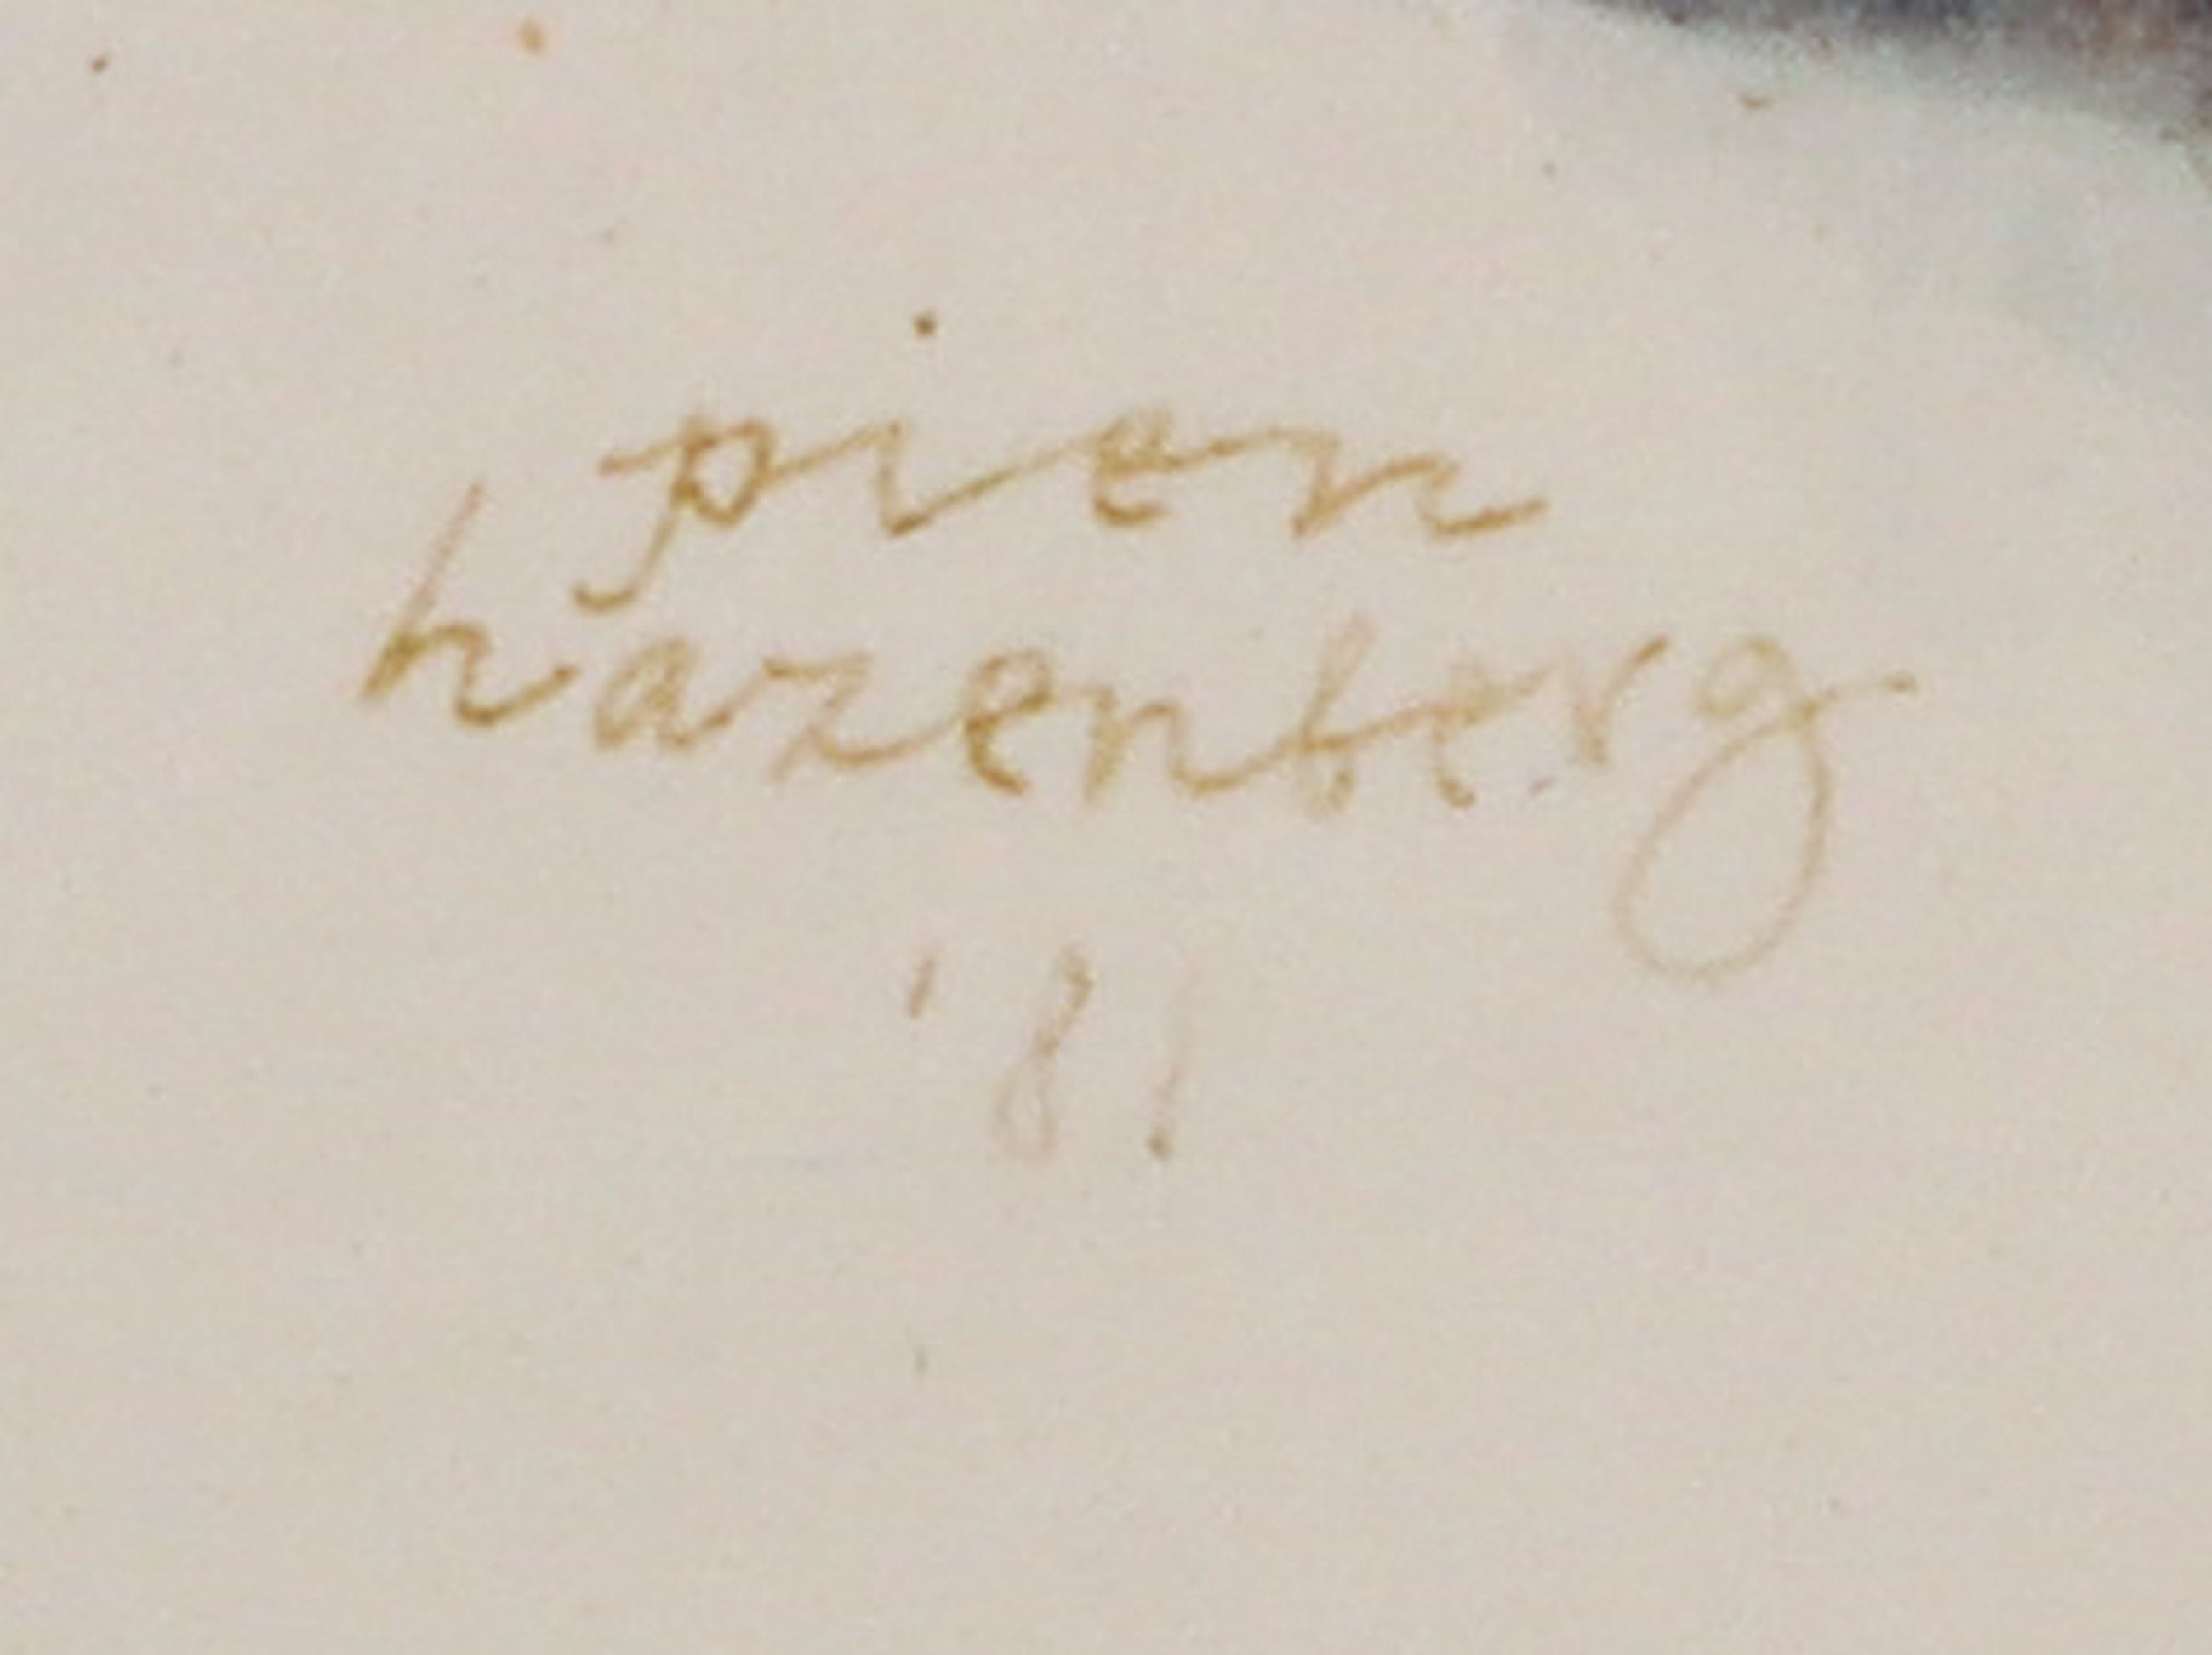 pien
hazenberg
'81